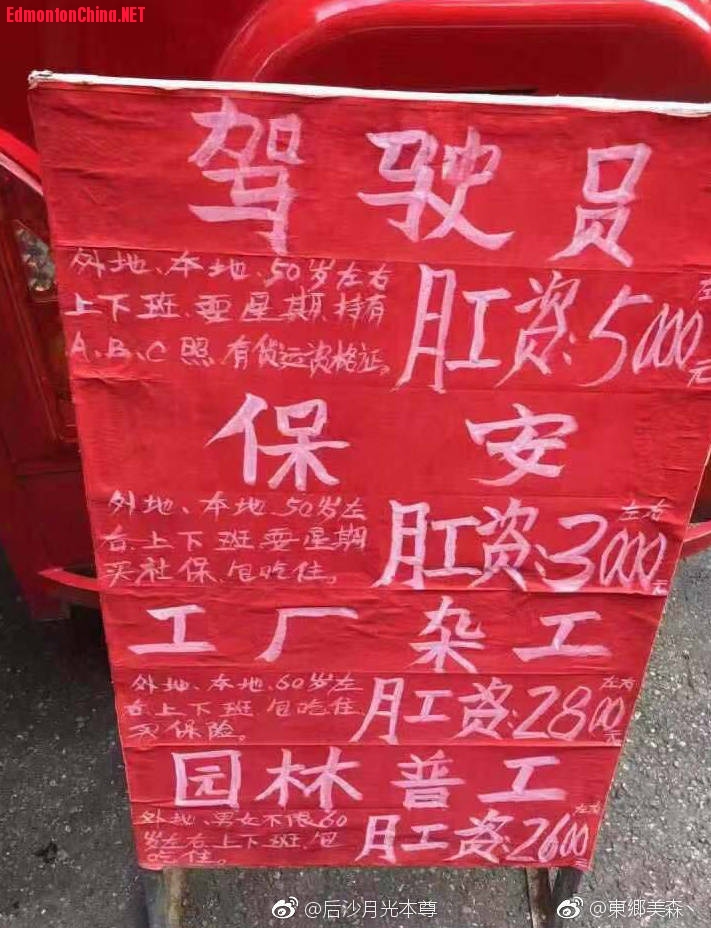 EdmontonChina.NET
驾驶员
外地、本地、50岁左右
上下班、耍星期、持有
A、B、C照、有货运资格证。
月工资:5000左右元
保安
外地、本地、50岁左
右、上下班、耍星期
买社保、包吃住。
月工资:3000左右元
工厂杂工
外地、本地、60岁左
右、上下班、包吃住、
买保险。
月工资:2800左右元
园林普工
外地、男女不限、60
岁左右、上下班、包
吃住。
月工资:2600左右元
@后沙月光本尊
@東鄉美森丶